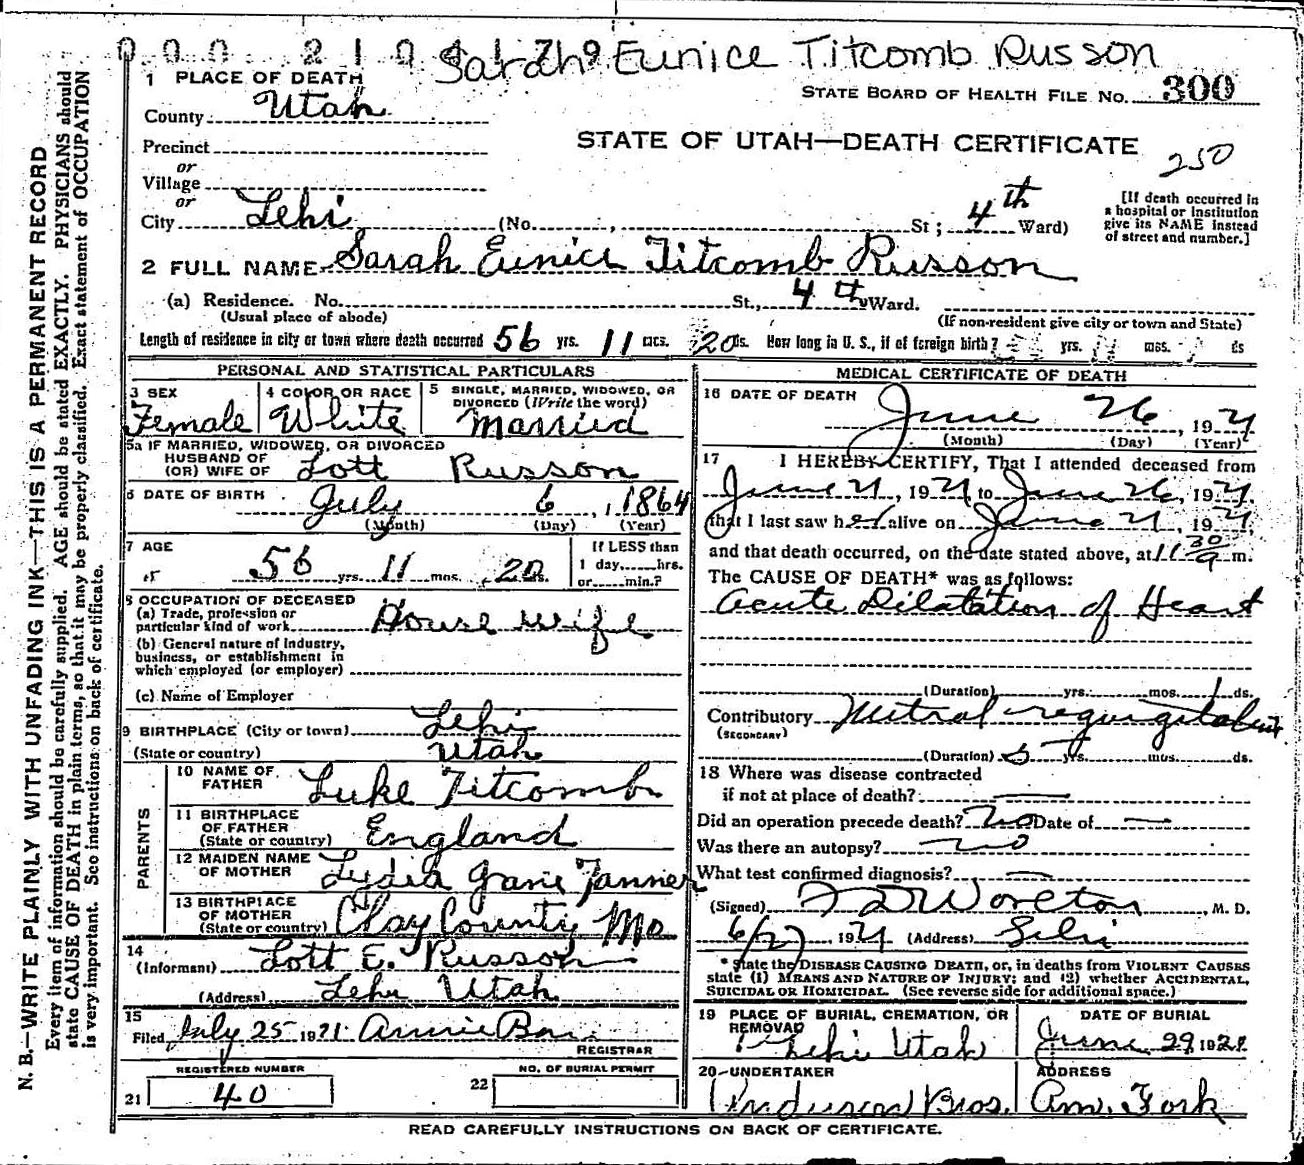 Sarah Eunice Titcomb Russon
1 PLACE OF DEATH
STATE BOARD OF HEALTH FILE NO. 300
County Utah
STATE OF UTAH—DEATH CERTIFICATE
250
Precinct
or
Village
or
City Lehi (No. , St; 4th Ward)
[If death occurred in a hospital or institution give its NAME instead of street and number.]
2 FULL NAME Sarah Eunice Titcomb Russon
(a) Residence. No. St., 4th Ward.
(Usual place of abode) (If non-resident give city or town and State)
Length of residence in city or town where death occurred 56 yrs. 11 mos. 20 ds. How long in U. S., if of foreign birth? yrs. mos. ds
PERSONAL AND STATISTICAL PARTICULARS
3 SEX Female
4 COLOR OR RACE White
5 SINGLE, MARRIED, WIDOWED, OR DIVORCED (Write the word) Married
5a IF MARRIED, WIDOWED, OR DIVORCED
HUSBAND OF
(OR) WIFE OF Lott Russon
6 DATE OF BIRTH July 6, 1864
(Month) (Day) (Year)
7 AGE
56 yrs. 11 mos. 20 ds.
If LESS than
1 day, hrs.
or min.?
8 OCCUPATION OF DECEASED
(a) Trade, profession or
particular kind of work House wife
(b) General nature of Industry,
business, or establishment in
which employed (or employer)
(c) Name of Employer
9 BIRTHPLACE (City or town) Lehi
(State or country) Utah
PARENTS
10 NAME OF FATHER Luke Titcomb
11 BIRTHPLACE OF FATHER (State or country) England
12 MAIDEN NAME OF MOTHER Lydia Jane Tanner
13 BIRTHPLACE OF MOTHER (State or country) Clay County Mo
14
(Informant) Lott E. Russon
(Address) Lehi Utah
15
Filed July 25 1921 Annie
REGISTRAR
REGISTERED NUMBER
21 40
NO. OF BURIAL PERMIT
22
MEDICAL CERTIFICATE OF DEATH
16 DATE OF DEATH
June 26, 1921
(Month) (Day) (Year)
17 I HEREBY CERTIFY, That I attended deceased from
June 21, 1921 to June 26, 1921,
that I last saw her alive on June 21, 1921
and that death occurred, on the date stated above, at 11 30 a m.
The CAUSE OF DEATH* was as follows:
Acute Dilatation of Heart
(Duration) yrs. mos. 1 ds.
Contributory Mitral regurgitation
(SECONDARY)
(Duration) 5 yrs. mos. ds.
18 Where was disease contracted
if not at place of death? —
Did an operation precede death? No Date of —
Was there an autopsy? no
What test confirmed diagnosis? —
(Signed) , M. D.
6/27, 1921 (Address) Lehi
* State the DISEASE CAUSING DEATH, or, in deaths from VIOLENT CAUSES
state (1) MEANS AND NATURE OF INJURY; and (2) whether ACCIDENTAL,
SUICIDAL OR HOMICIDAL. (See reverse side for additional space.)
19 PLACE OF BURIAL, CREMATION, OR REMOVAL
Lehi Utah
DATE OF BURIAL
June 29, 1921
20—UNDERTAKER
Anderson Bros.
ADDRESS
Am. Fork
READ CAREFULLY INSTRUCTIONS ON BACK OF CERTIFICATE.
N. B.—WRITE PLAINLY WITH UNFADING INK—THIS IS A PERMANENT RECORD
Every item of information should be carefully supplied. AGE should be stated EXACTLY. PHYSICIANS should
state CAUSE OF DEATH in plain terms, so that it may be properly classified. Exact statement of OCCUPATION
is very important. See instructions on back of certificate.